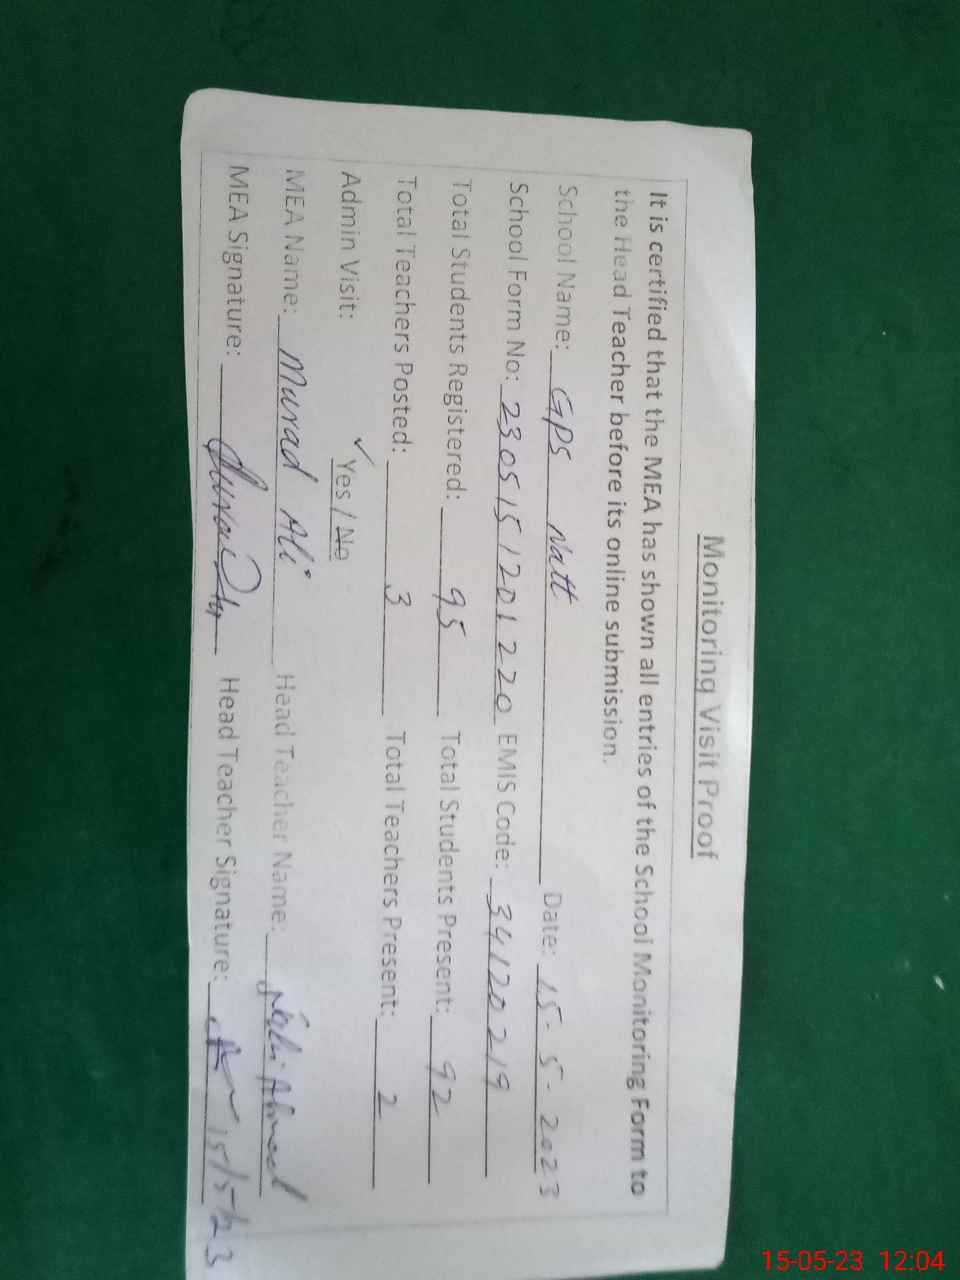 Monitoring Visit Proof
It is certified that the MEA has shown all entries of the School Monitoring Form to
the Head Teacher before its online submission.
School Name: GPS Natt Date: 15-5-2023
School Form No: 2305151201220 EMIS Code: 34120219
Total Students Registered: 95 Total Students Present: 92
Total Teachers Posted: 3 Total Teachers Present: 2
Admin Visit: ✓ Yes / No
MEA Name: Murad Ali Head Teacher Name: Ahmad
MEA Signature: Head Teacher Signature: 15/5/23
15-05-23 12:04